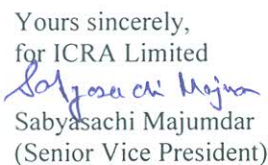 Yours sincerely,
for ICRA Limited
Sabyasachi Majumdar
Sabyasachi Majumdar
(Senior Vice President)